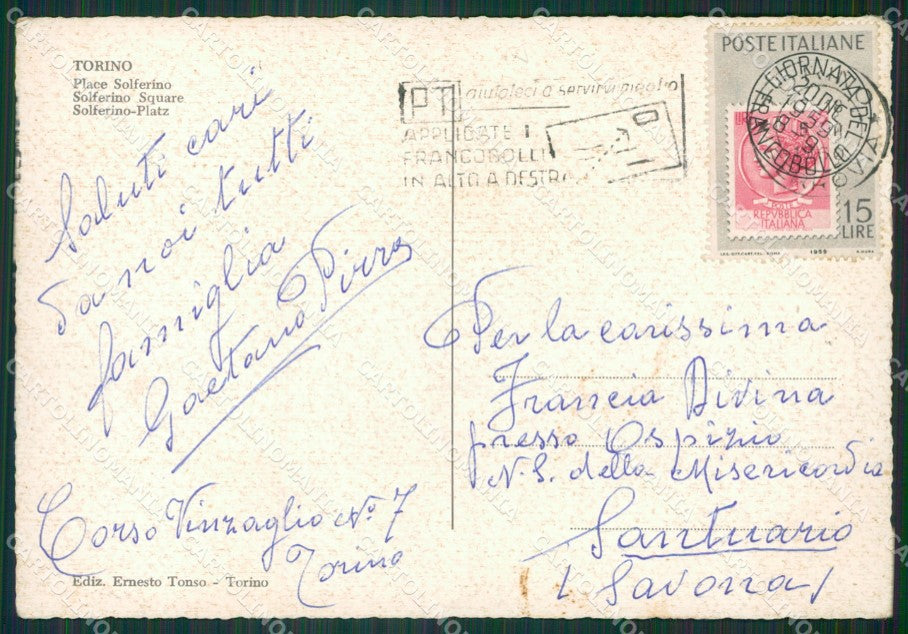 TORINO
Place Solferino
Solferino Square
Solferino-Platz
Saluti cari
da noi tutti
famiglia
Gaetano Pirra
Corso Vinzaglio No. 7
Torino
Ediz. Ernesto Tonso - Torino
PT aiutateci a servirvi meglio
APPLICATE I
FRANCOBOLLI
IN ALTO A DESTRA
POSTE ITALIANE
GIORNATA DEL
FRANCOBOLLO
POSTE
REPUBBLICA
ITALIANA
15
LIRE
1959
Per la carissima
Francia Divina
presso Ospizio
N.S. della Misericordia
Santuario
(Savona)